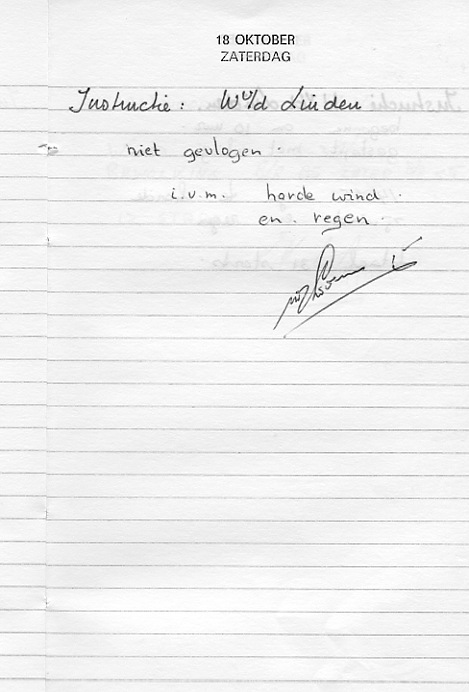 18 OKTOBER
ZATERDAG
Instructie: W v/d Linden
niet gevlogen.
i.v.m. harde wind.
en regen.